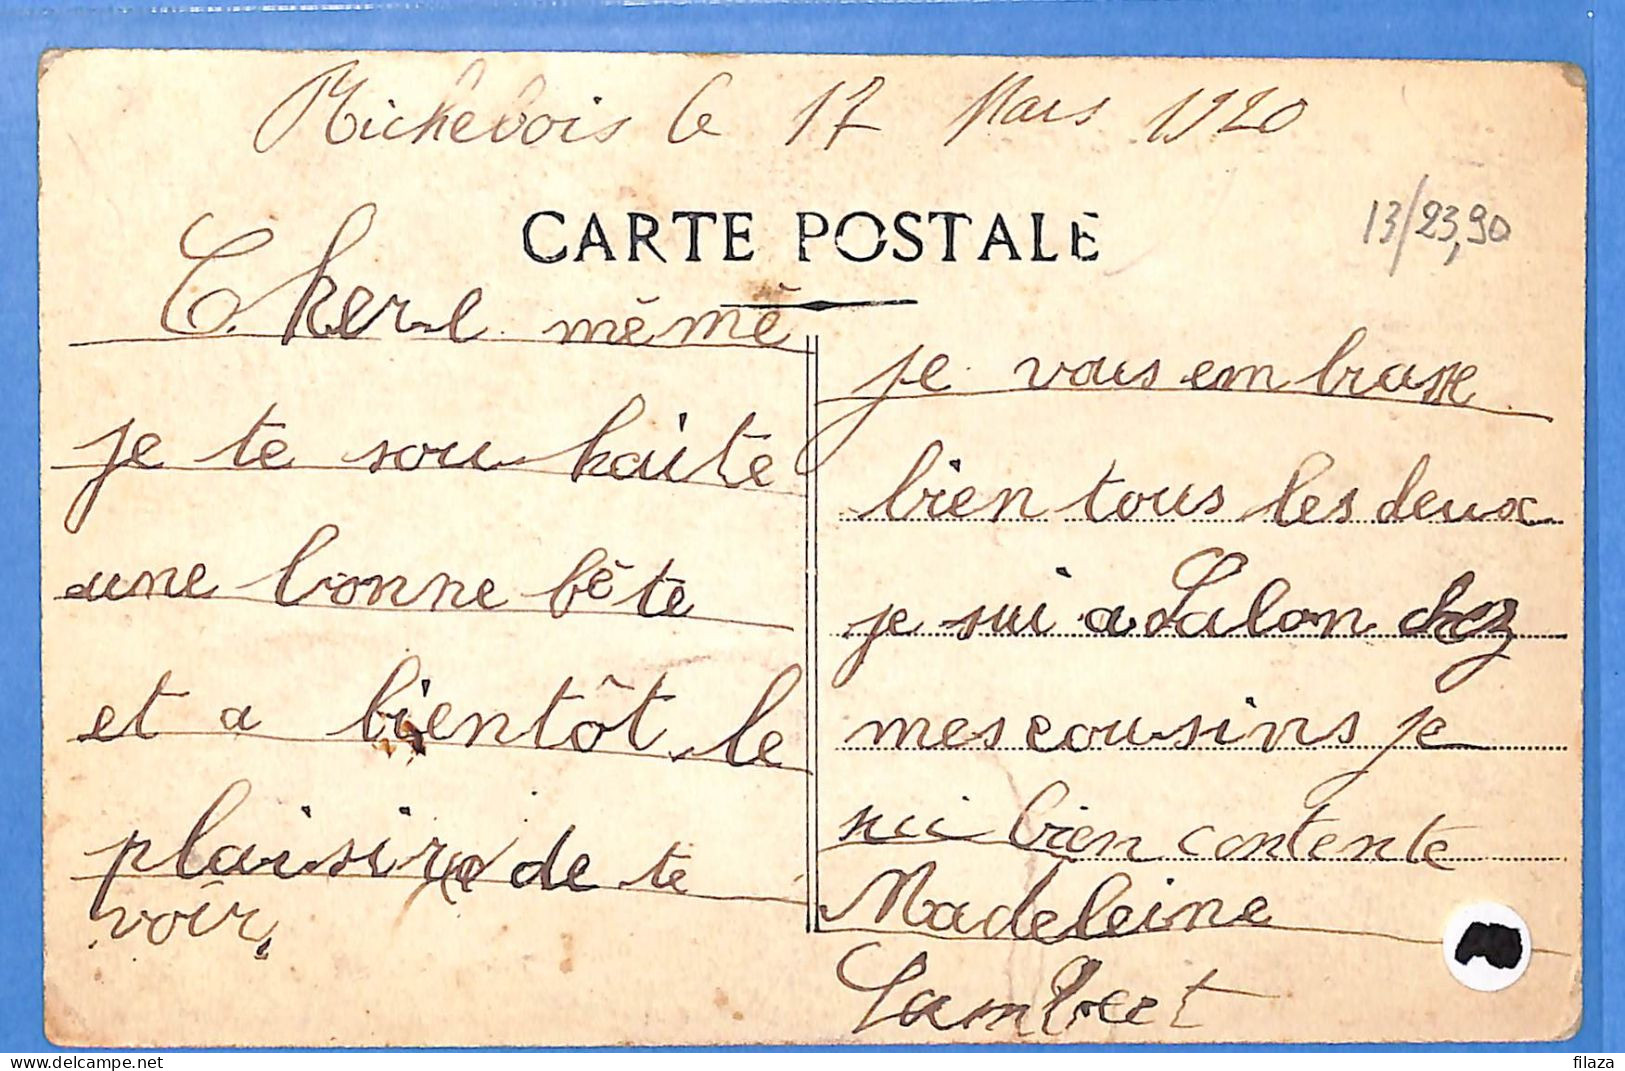 Richebois le 17 Mars 1920
13/23,90
CARTE POSTALE
Chere mémé
je te souhaite
une bonne fête
et a bientôt le
plaisire de te
voir.
je vous embrasse
bien tous les deux
je sui a Salon chez
mes cousins je
sui bien contente
Madeleine
Lambert
filaza